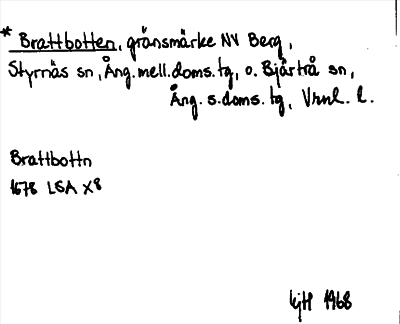 * Brattbotten, gränsmärke NV Berg,
Styrnäs sn, Ång. mell. doms. tg, o. Bjärtrå sn,
Ång. s. doms. tg, Vrnl. l.
Brattbottn
1678 LSA X8
LjH 1968